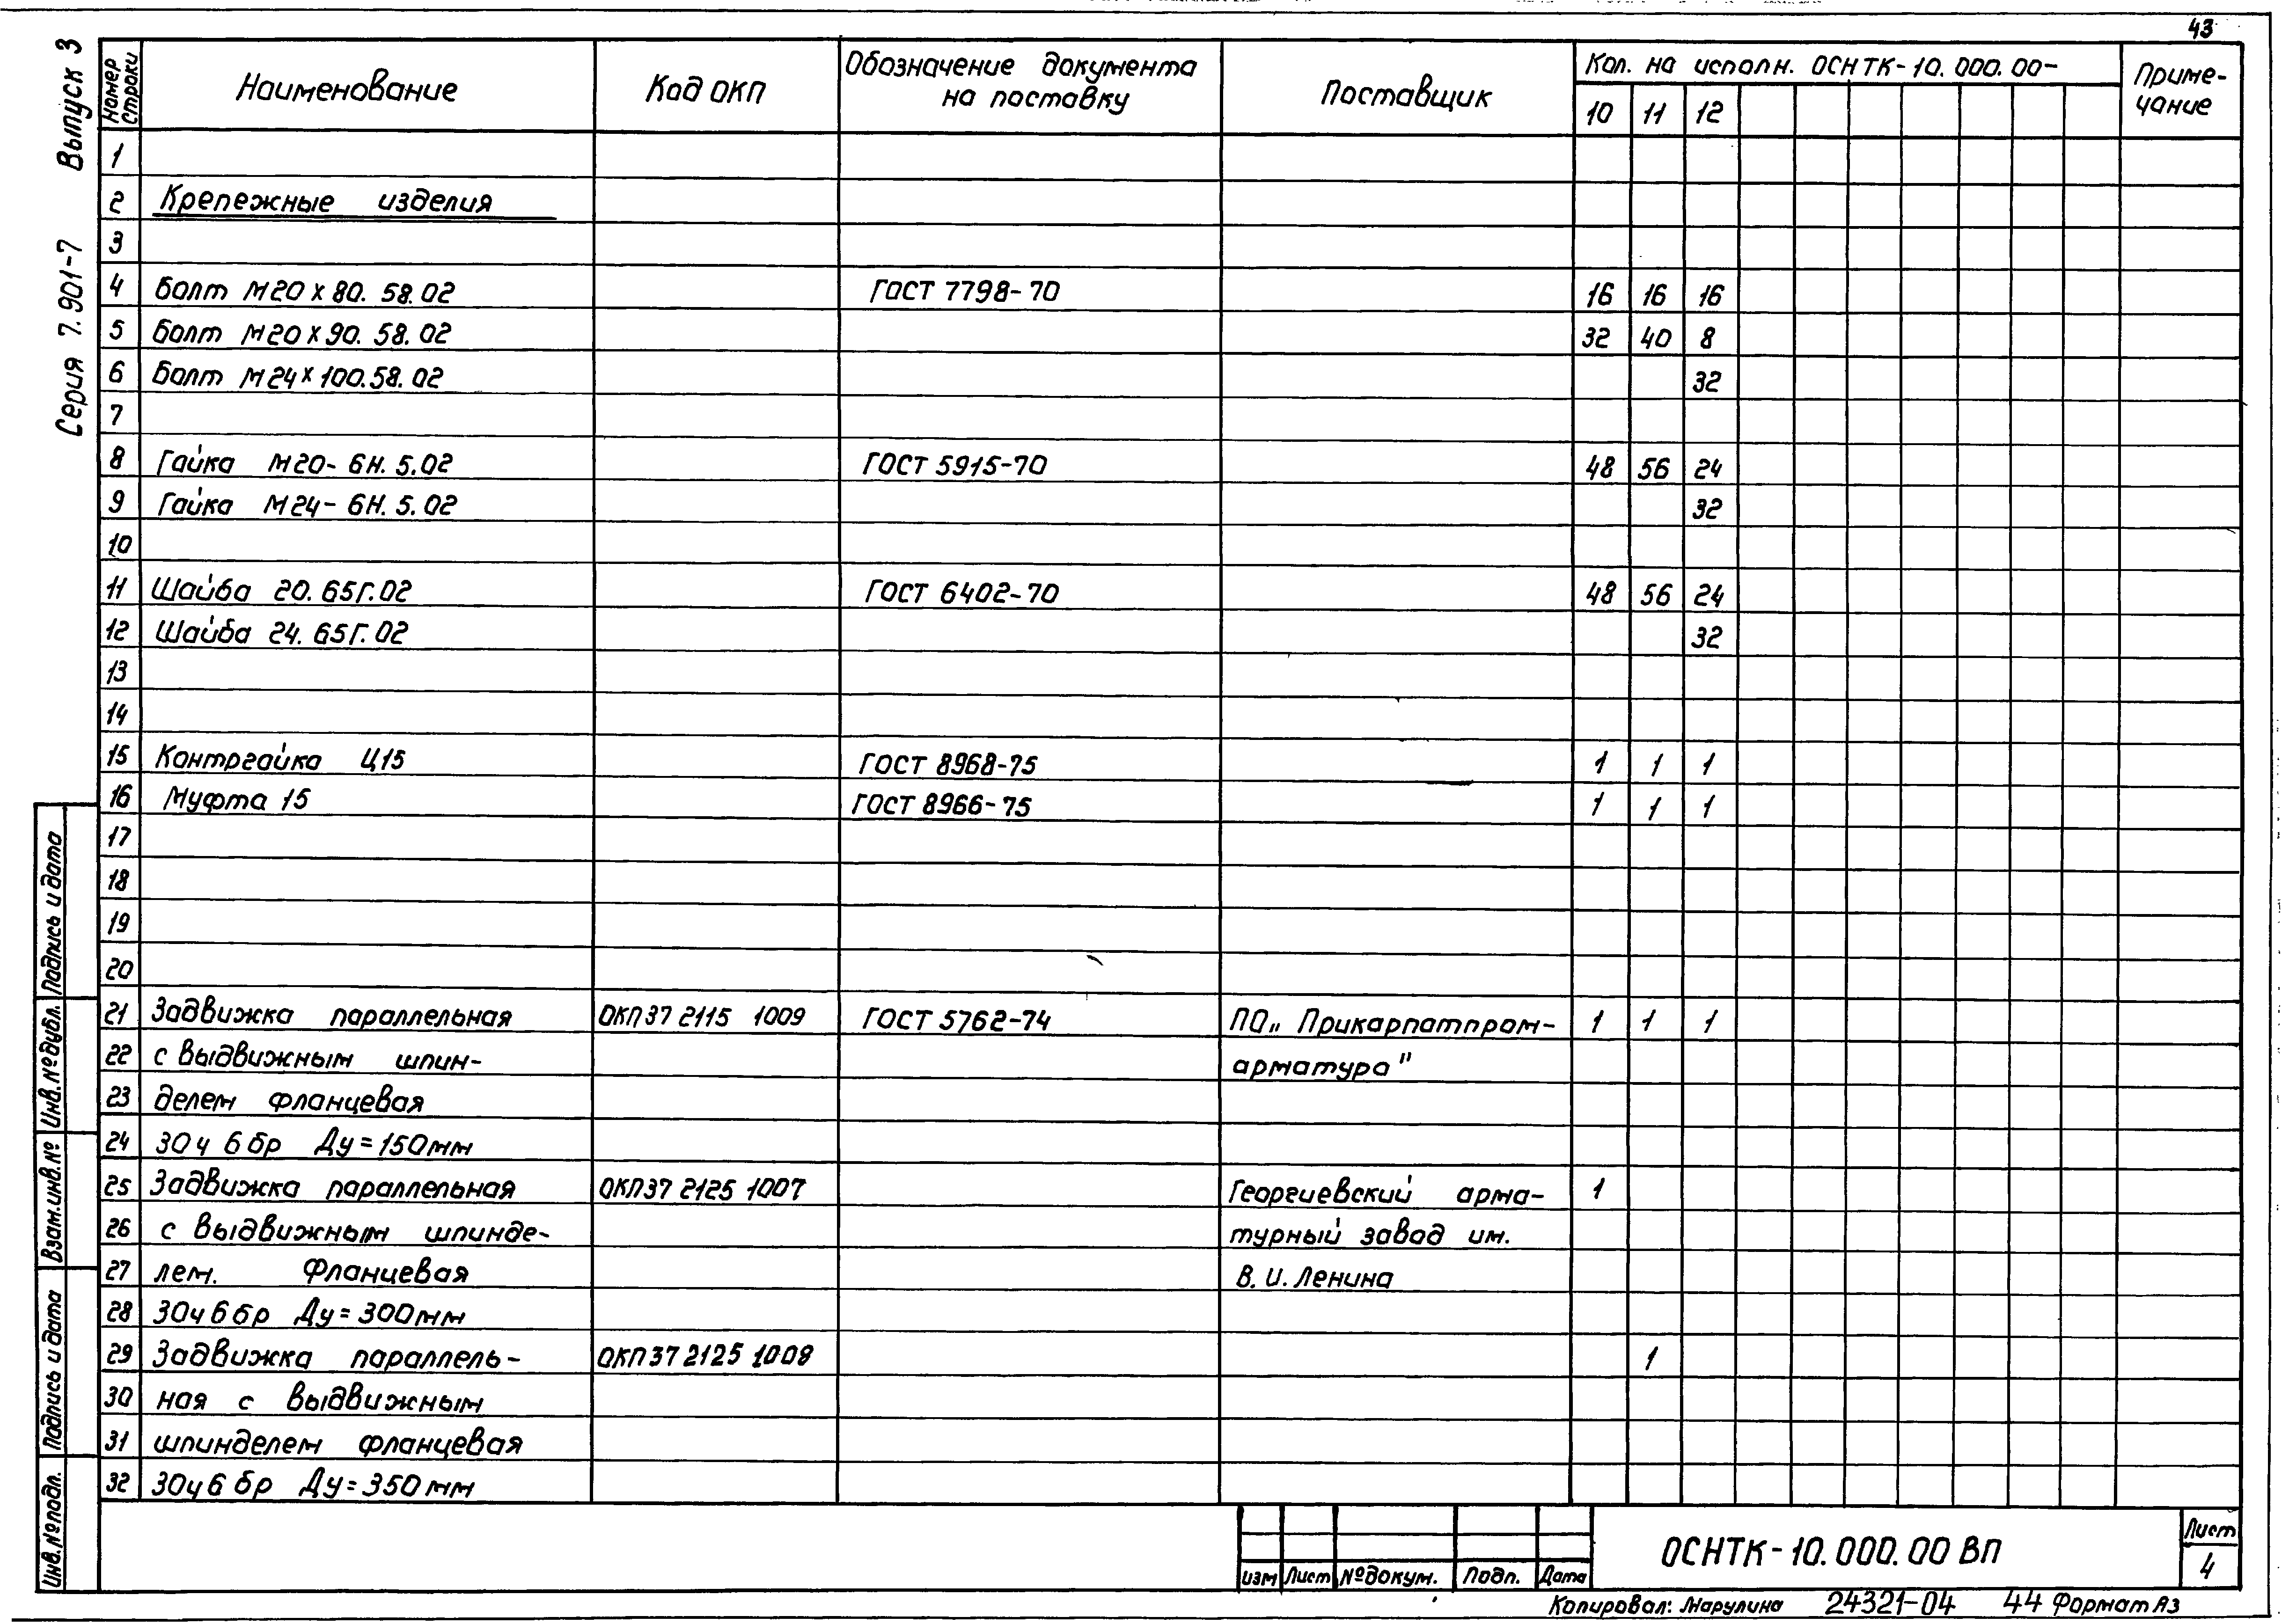 43
Серия 7.901-7 Выпуск 3
Номер строки Наименование Код ОКП Обозначение документа на поставку Поставщик Кол. на исполн. ОСНТК-10.000.00- Приме-чание
10 11 12
1
2 Крепежные изделия
3
4 Болт М20х80.58.02 ГОСТ 7798-70 16 16 16
5 Болт М20х90.58.02 32 40 8
6 Болт М24х100.58.02 32
7
8 Гайка М20-6Н.5.02 ГОСТ 5915-70 48 56 24
9 Гайка М24-6Н.5.02 32
10
11 Шайба 20.65Г.02 ГОСТ 6402-70 48 56 24
12 Шайба 24.65Г.02 32
13
14
15 Контргайка Ц15 ГОСТ 8968-75 1 1 1
16 Муфта 15 ГОСТ 8966-75 1 1 1
17
18
19
20
21 Задвижка параллельная ОКП 37 2115 1009 ГОСТ 5762-74 ПО „Прикарпатпром- 1 1 1
22 с выдвижным шпин- арматура"
23 делем фланцевая
24 30ч6бр Ду=150мм
25 Задвижка параллельная ОКП 37 2125 1007 Георгиевский арма- 1
26 с выдвижным шпинде- турный завод им.
27 лем. Фланцевая В.И.Ленина
28 30ч6бр Ду=300мм
29 Задвижка параллель- ОКП 37 2125 1008 1
30 ная с выдвижным
31 шпинделем фланцевая
32 30ч6бр Ду=350мм
Инв.№подл. Подпись и дата Взам.инв.№ Инв.№дубл. Подпись и дата
Изм Лист №докум. Подп. Дата
ОСНТК-10.000.00 ВП
Лист
4
Копировал: Марулина 24321-04 44 Формат А3